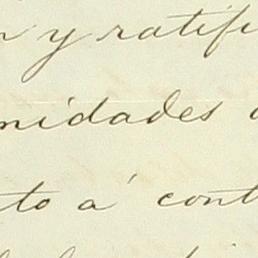 y ratifi
nidades
to á cont